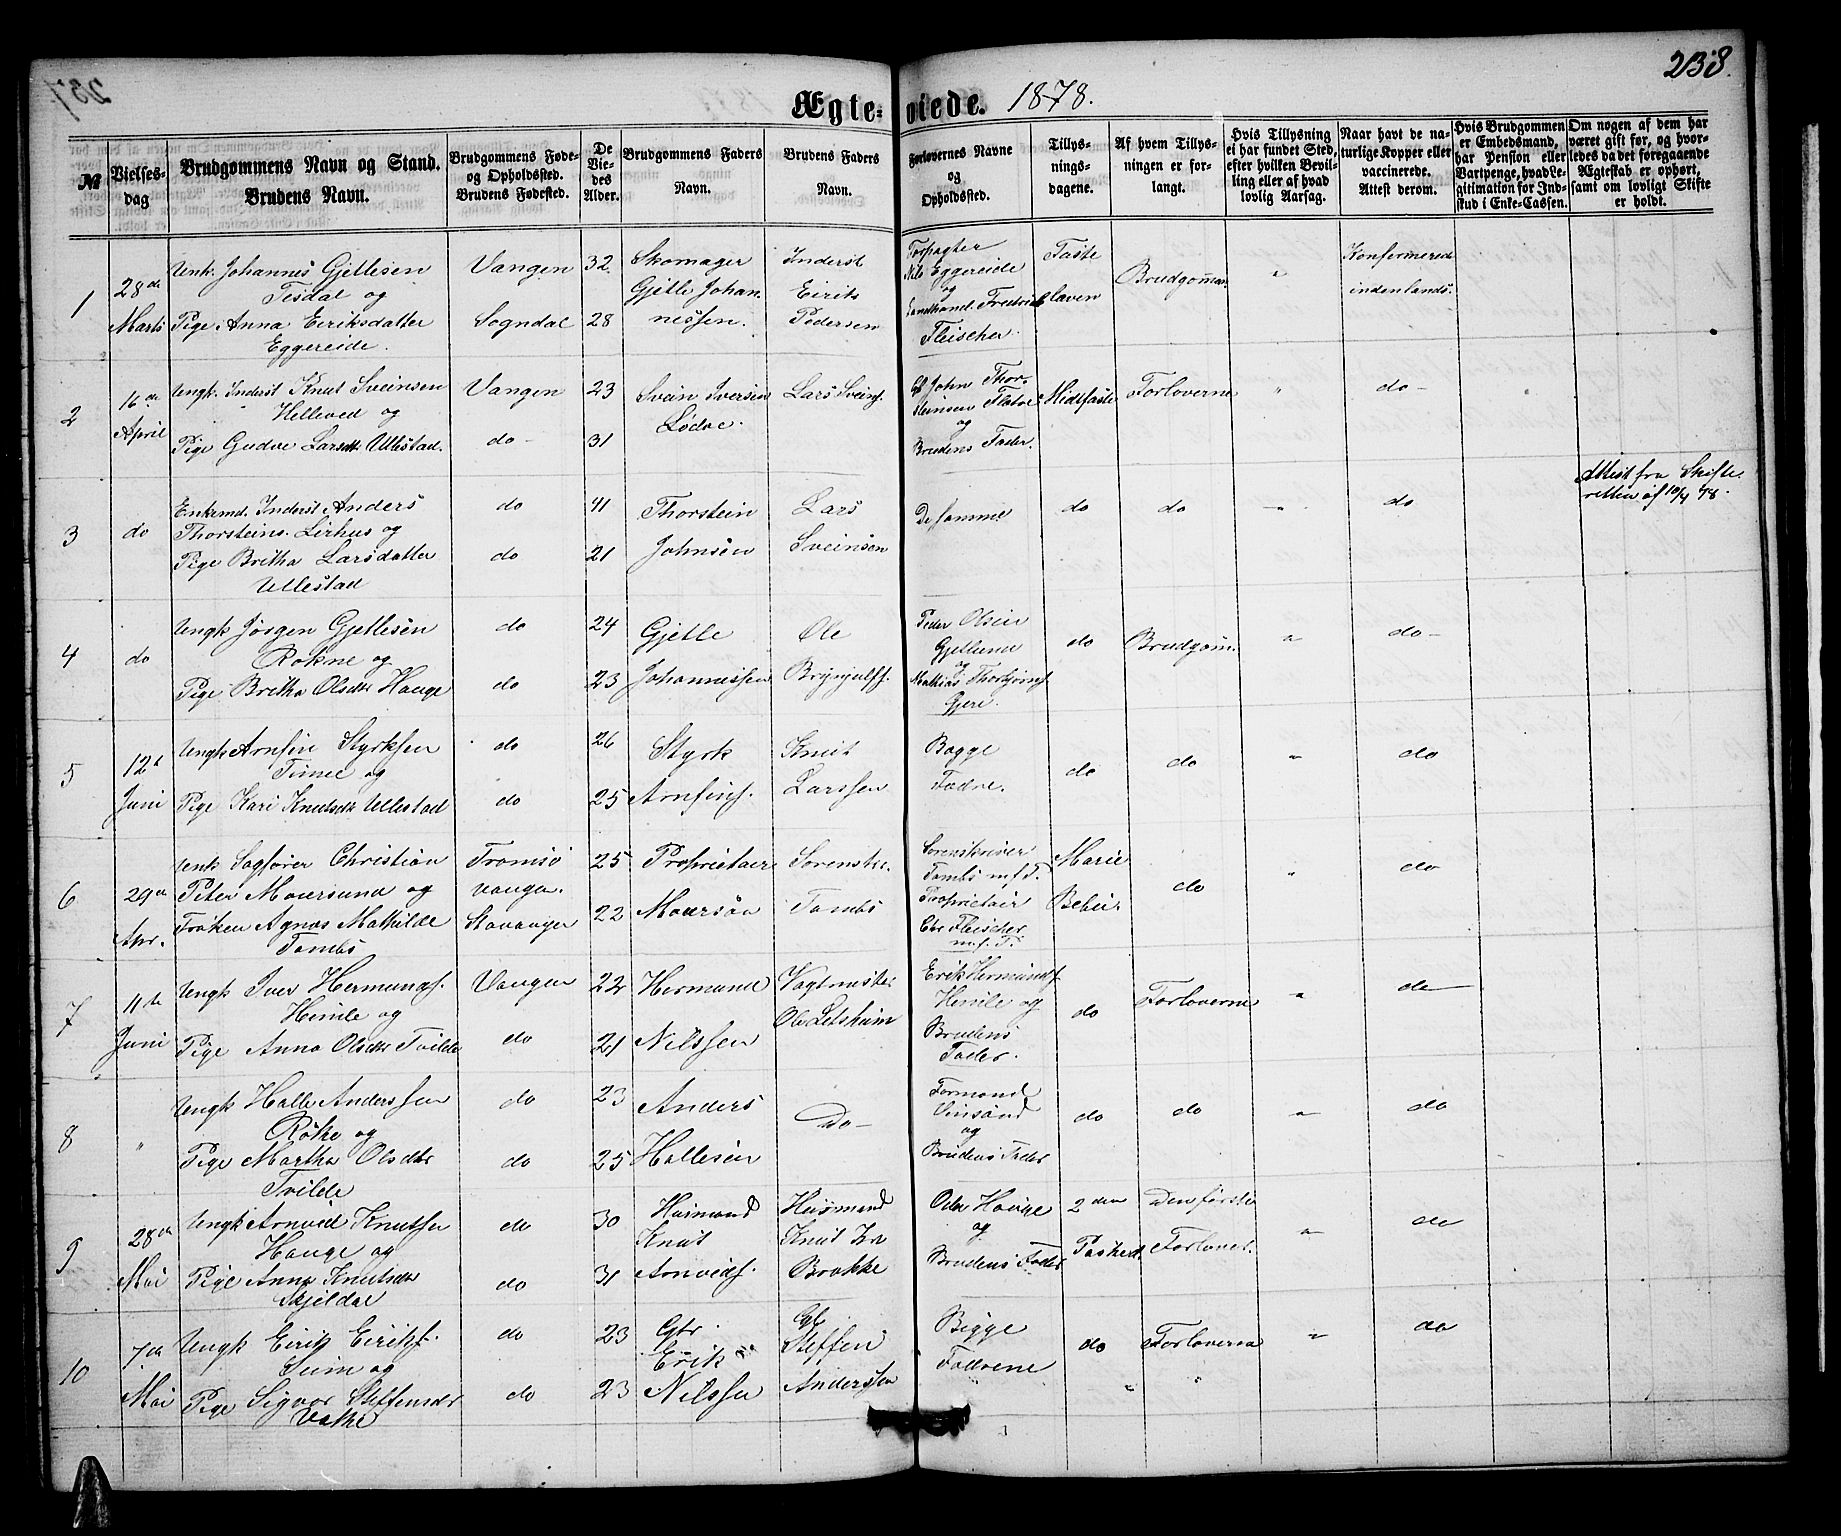 238.
Ægteviede. 1878.
№
Vielses-
dag
Brudgommens Navn og Stand.
Brudens Navn.
Brudgommens Føde-
og Opholdssted.
Brudens Fødested.
De
Vie-
des
Alder.
Brudgommens Faders
Navn.
Brudens Faders
Navn.
Forlovernes Navne
og
Opholdssted.
Tillys-
nings-
dagene.
Af hvem Tillys-
ningen er for-
langt.
Hvis Tillysning
ei har fundet Sted,
efter hvilken Bevil-
ling eller af hvad
lovlig Aarsag.
Naar havt de na-
turlige Kopper eller
vaccinerede.
Attest derom.
Hvis Brudgommen
er Embedsmand,
har Pension eller
Vartpenge, hvad Le-
gitimation for Ind-
skud i Enke-Cassen.
Om nogen af dem har
været gift før, og hvor-
ledes da det foregaaende
Ægteskab er ophørt,
samt om lovligt Skifte
er holdt.
1
28de
Marts
Unk. Johannes Gjellesen
Tesdal og
Pige Anna Eeriksdatter
Eggereide.
Vangen
Sogndal
32
28
Skomager
Gjelle Johan-
nessen.
Inderst
Eirik
Pedersen
Forpagter
Nils Eggereide
og
Landhand. Fredrick
Fleischer.
Faste
laven
Brudgoman
"
Konfermerede
indenlands.
2
16de
April
Ungk. Inderst Knut Sveinsen
Helleved og
Pige Gudve Larsdtr Ullestad.
Vangen
do -
23
31
Svein Iversen
Lødve.
Lars Sveins.
John Thor-
steinsen Flatve
og
Brudens Fader.
Midtfaste
Forloverne
"
do -
"
3
do
Enkemd. Inderst Anders
Thorsteins. Lirhus og
Pige Britha Larsdatter
Ullestad
do
do
41
21
Thorstein
Johnsen
Lars
Sveinsen
De samme
do
do
"
do
Attest fra Skifte-
retten af 10/4 78.
4
do
Ungk Jörgen Gjellesen
Rokne og
Pige Britha Olsdtr Hauge
do
do
24
23
Gjelle
Johannessen
Ole
Brynjulfs.
Peder Olsen
Gjellund
og
Mathias Thorbjørns.
Gjere.
do
Brudgom.
"
do -
5
12te
Juni
Ungk Arnfin Styrksen
Finne og
Pige Kari Knutsdtr Ullestad
do
do
26
25
Styrk
Arnfins.
Knut
Larssen
Begge
Fædre.
do
do
"
do
6
29de
Apr.
Unk Sagfører Christian
Peter Moursund og
Frøken Agnes Mathilde
Tambs
Tromsø
Vangen.
Stavanger
25
22
Proprietair
Moursün
Sorenskr.
Tambs
Sorenskriver
Tambs m.f.T.
Proprietair
Chr Fleischer
m.f.T.
Marie
Bebu.
do
"
do
7
11te
Juni
Ungk Iver Hermunds.
Himle og
Pige Anna Olsdtr Tvilde
Vangen
do
22
21
Hermund
Nilssen
Vagtmester
Ole Letsheim
Erik Hermunds.
Himle og
Brudens
Fader.
do
Forloverne
"
do
8
"
Ungk Halle Anderssen
Røthe og
Pige Martha Olsdtr
Tvilde
do
do
23
25
Anders
Hallesen
Do -
Formand
Vinsand
og
Brudens Fader
do
do
"
do
9
28de
Mai
Ungk Arnvid Knutsen
Hauge og
Pige Anna Knutsdtr
Skjeldal
do
do
30
31
Husmand
Knut
Arnvids.
Husmand
Knut
Brekke
Hauge
og
Brudens Fader
2den
Paasked.
Den første
Forlover.
"
do
10
7de
Mai
Ungk Eirik Eiriks.
Seim og
Pige Sigvor Steffensdtr
Vethe
do
do
23
23
Gbr.
Erik
Nilssen
Gbr
Steffen
Anderssen
Begge
Fædrene
do
"
Forloverne
"
"
do